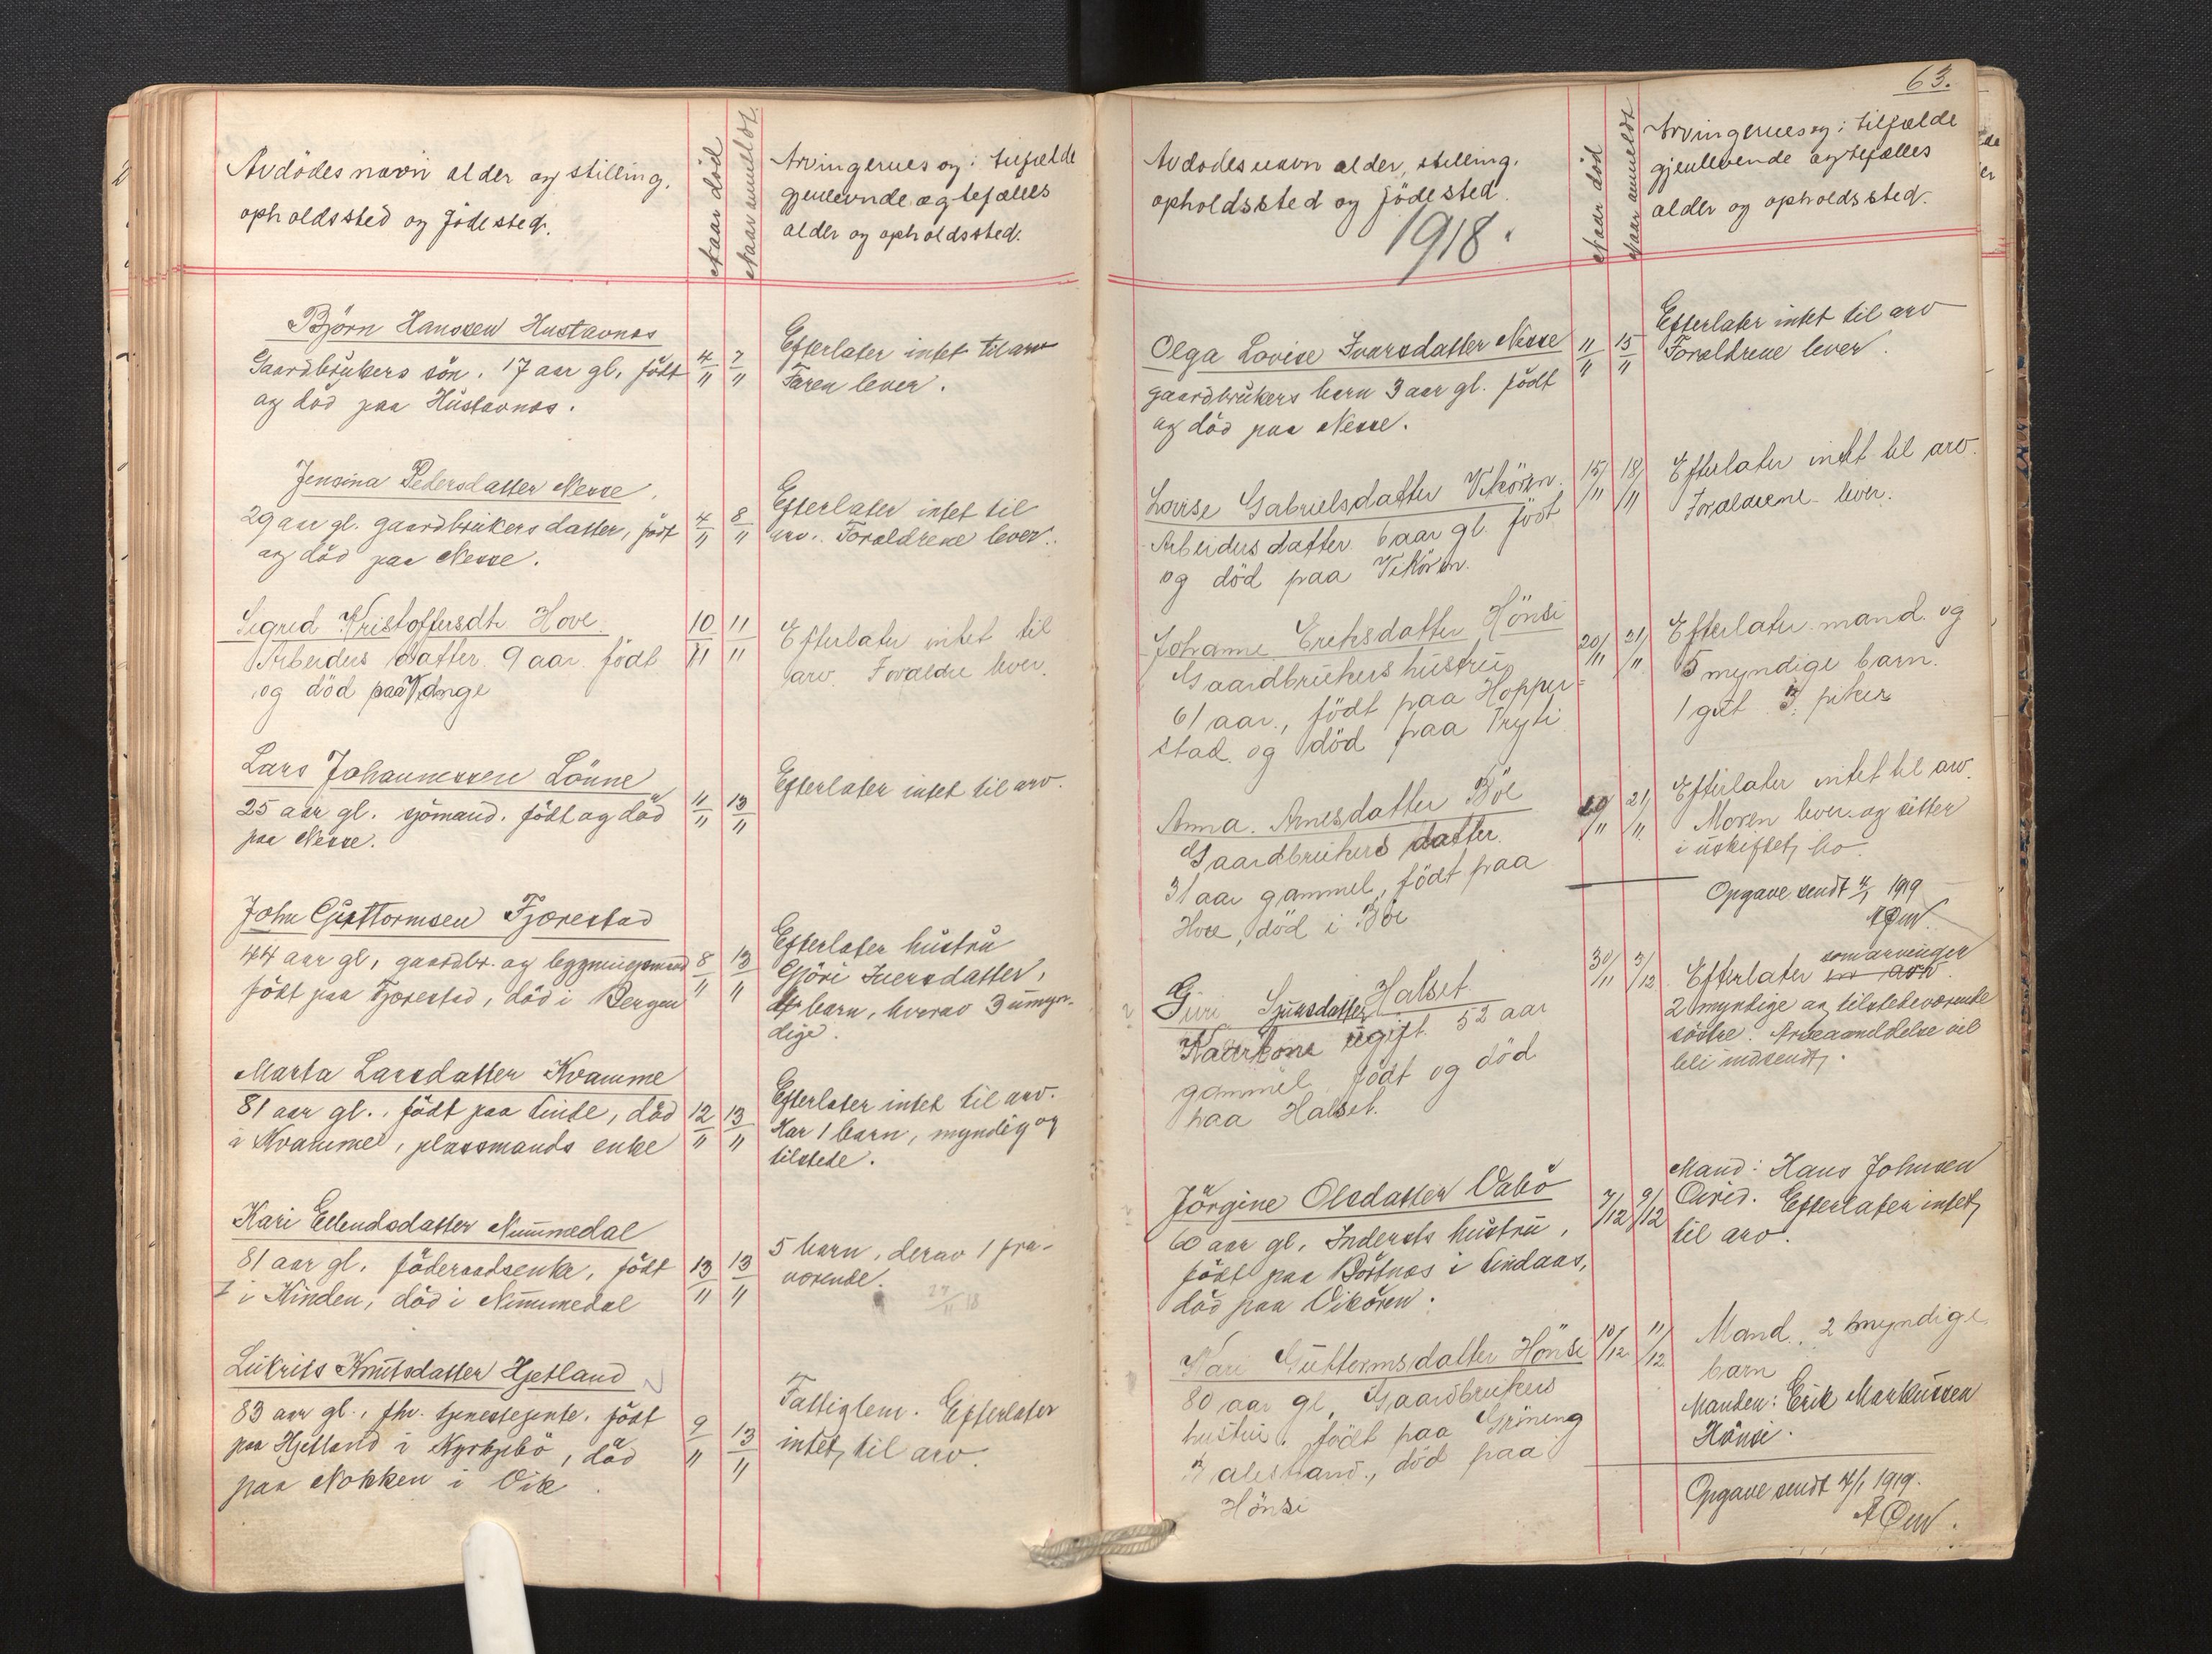 Avdødes navn alder og stilling,
opholdssted og fødested.
Naar død
Naar anmeldt.
Arvingernes og i tilfælde
gjenlevnde ægtefælles
alder og opholdssted.
Björn Hanssen Hustavnes
Gaardbrükers sön. 17 aar gl. födt
og död paa Hüstavnes.
4/11
7/11
Efterlater intet til arv
Faren lever.
Jensina Pedersdatter Nesse
29 aar gl. gaardbrükers datter, födt
og död paa Nesse.
4/11
8/11
Efterlater intet til
arv. Forældrene lever.
Sigrid Kristoffersdtr Hove
Arbeiders datter 9 aar födt
og död paa Vange
10/11
11/11
Efterlater intet til
arv. Forældre lever.
Lars Johannessen Lönne
25 aar gl. sjömand. födt og död
paa Nesse.
11/11
13/11
Efterlater intet til arv.
John Guttormsen Fjærestad
44 aar gl, gaardbr. og bygningsmand
födt paa Fjærestad, död i Bergen
8/11
13/11
Efterlater hüstrü
Gjöri Iversdatter,
4 barn, hvorav 3 ümyn-
dige.
Marta Larsdatter Kvamme
81 aar gl., födt paa Linde, död
i Kvamme, plassmands enke
12/11
13/11
Efterlater intet til arv.
Har 1 barn, myndig og
tilstede.
Kari Ellendsdatter Nümmedal
81 aar gl, föderaadsenke, födt
i Kinden, död i Nümmedal
13/11
13/11
5 barn, derav 1 fra-
værende.
27/11 18
Lükrits Knütsdatter Hjetland
83 aar gl., fhv. tjenestejente, födt
paa Hjetland i Kyrkjebö, död
paa Nokken i Vik
9/11
13/11
Fattiglem. Efterlater
intet til arv.
63.
Avdødes navn alder, stilling.
opholdssted og fødested.
1918.
Naar død
Naar anmeldt
Arvingernes og i tilfælde
gjenlevende ægtefælles
alder og opholdssted.
Olga Lovise Ivarsdatter Nesse
gaardbrükers barn 3 aar gl. födt
og död paa Nesse.
11/11
15/11
Efterlater intet til arv
Forældrene lever.
Lovise Gabrielsdatter Vikören
Arbeiders datter 6 aar gl. födt
og död paa Vikören.
15/11
18/11
Efterlater intet til arv.
Forældrene lever.
Johanne Eriksdatter Hönsi
Gaardbrükers hüstrü
61 aar, födt paa Hopper=
stad og död paa Tryti
20/11
21/11
Efterlater mand og
5 myndige barn.
1 gut 3 piker
Anna Arnesdatter Böe
Gaardbrükers datter.
31 aar gammel, födt paa
Hove, död i Böe
20/11
21/11
Efterlater intet til arv.
Moren lever og sitter
i üskiftet bo
Opgave sendt 4/1 1919
Giüri Sjursdatter Halset
Kaarkone ügift 52 aar
gammel födt og död
paa Halset.
30/11
3/12
Efterlater som arvinger
2 myndige og tilstedeværende
söstre. Arveanmeldelse vil
bli indsendt.
Jörgine Olsdatter Vabö
60 aar gl, Indersts hüstrü,
födt paa Böstnes i Lindaas,
död paa Vikören.
7/12
9/12
Mand: Hans Johnsen
Qvid. Efterlater intet
til arv.
Kari Güttormsdatter Hönsi
80 aar gl, Gaardbrükers
hüstrü, födt paa Gröneng
Balestrand, död paa
Hönsi
10/12
11/12
Mand, 2 myndige
barn
Manden: Erik Markussen
Hönsi.
Opgave sendt 4/1 1919.